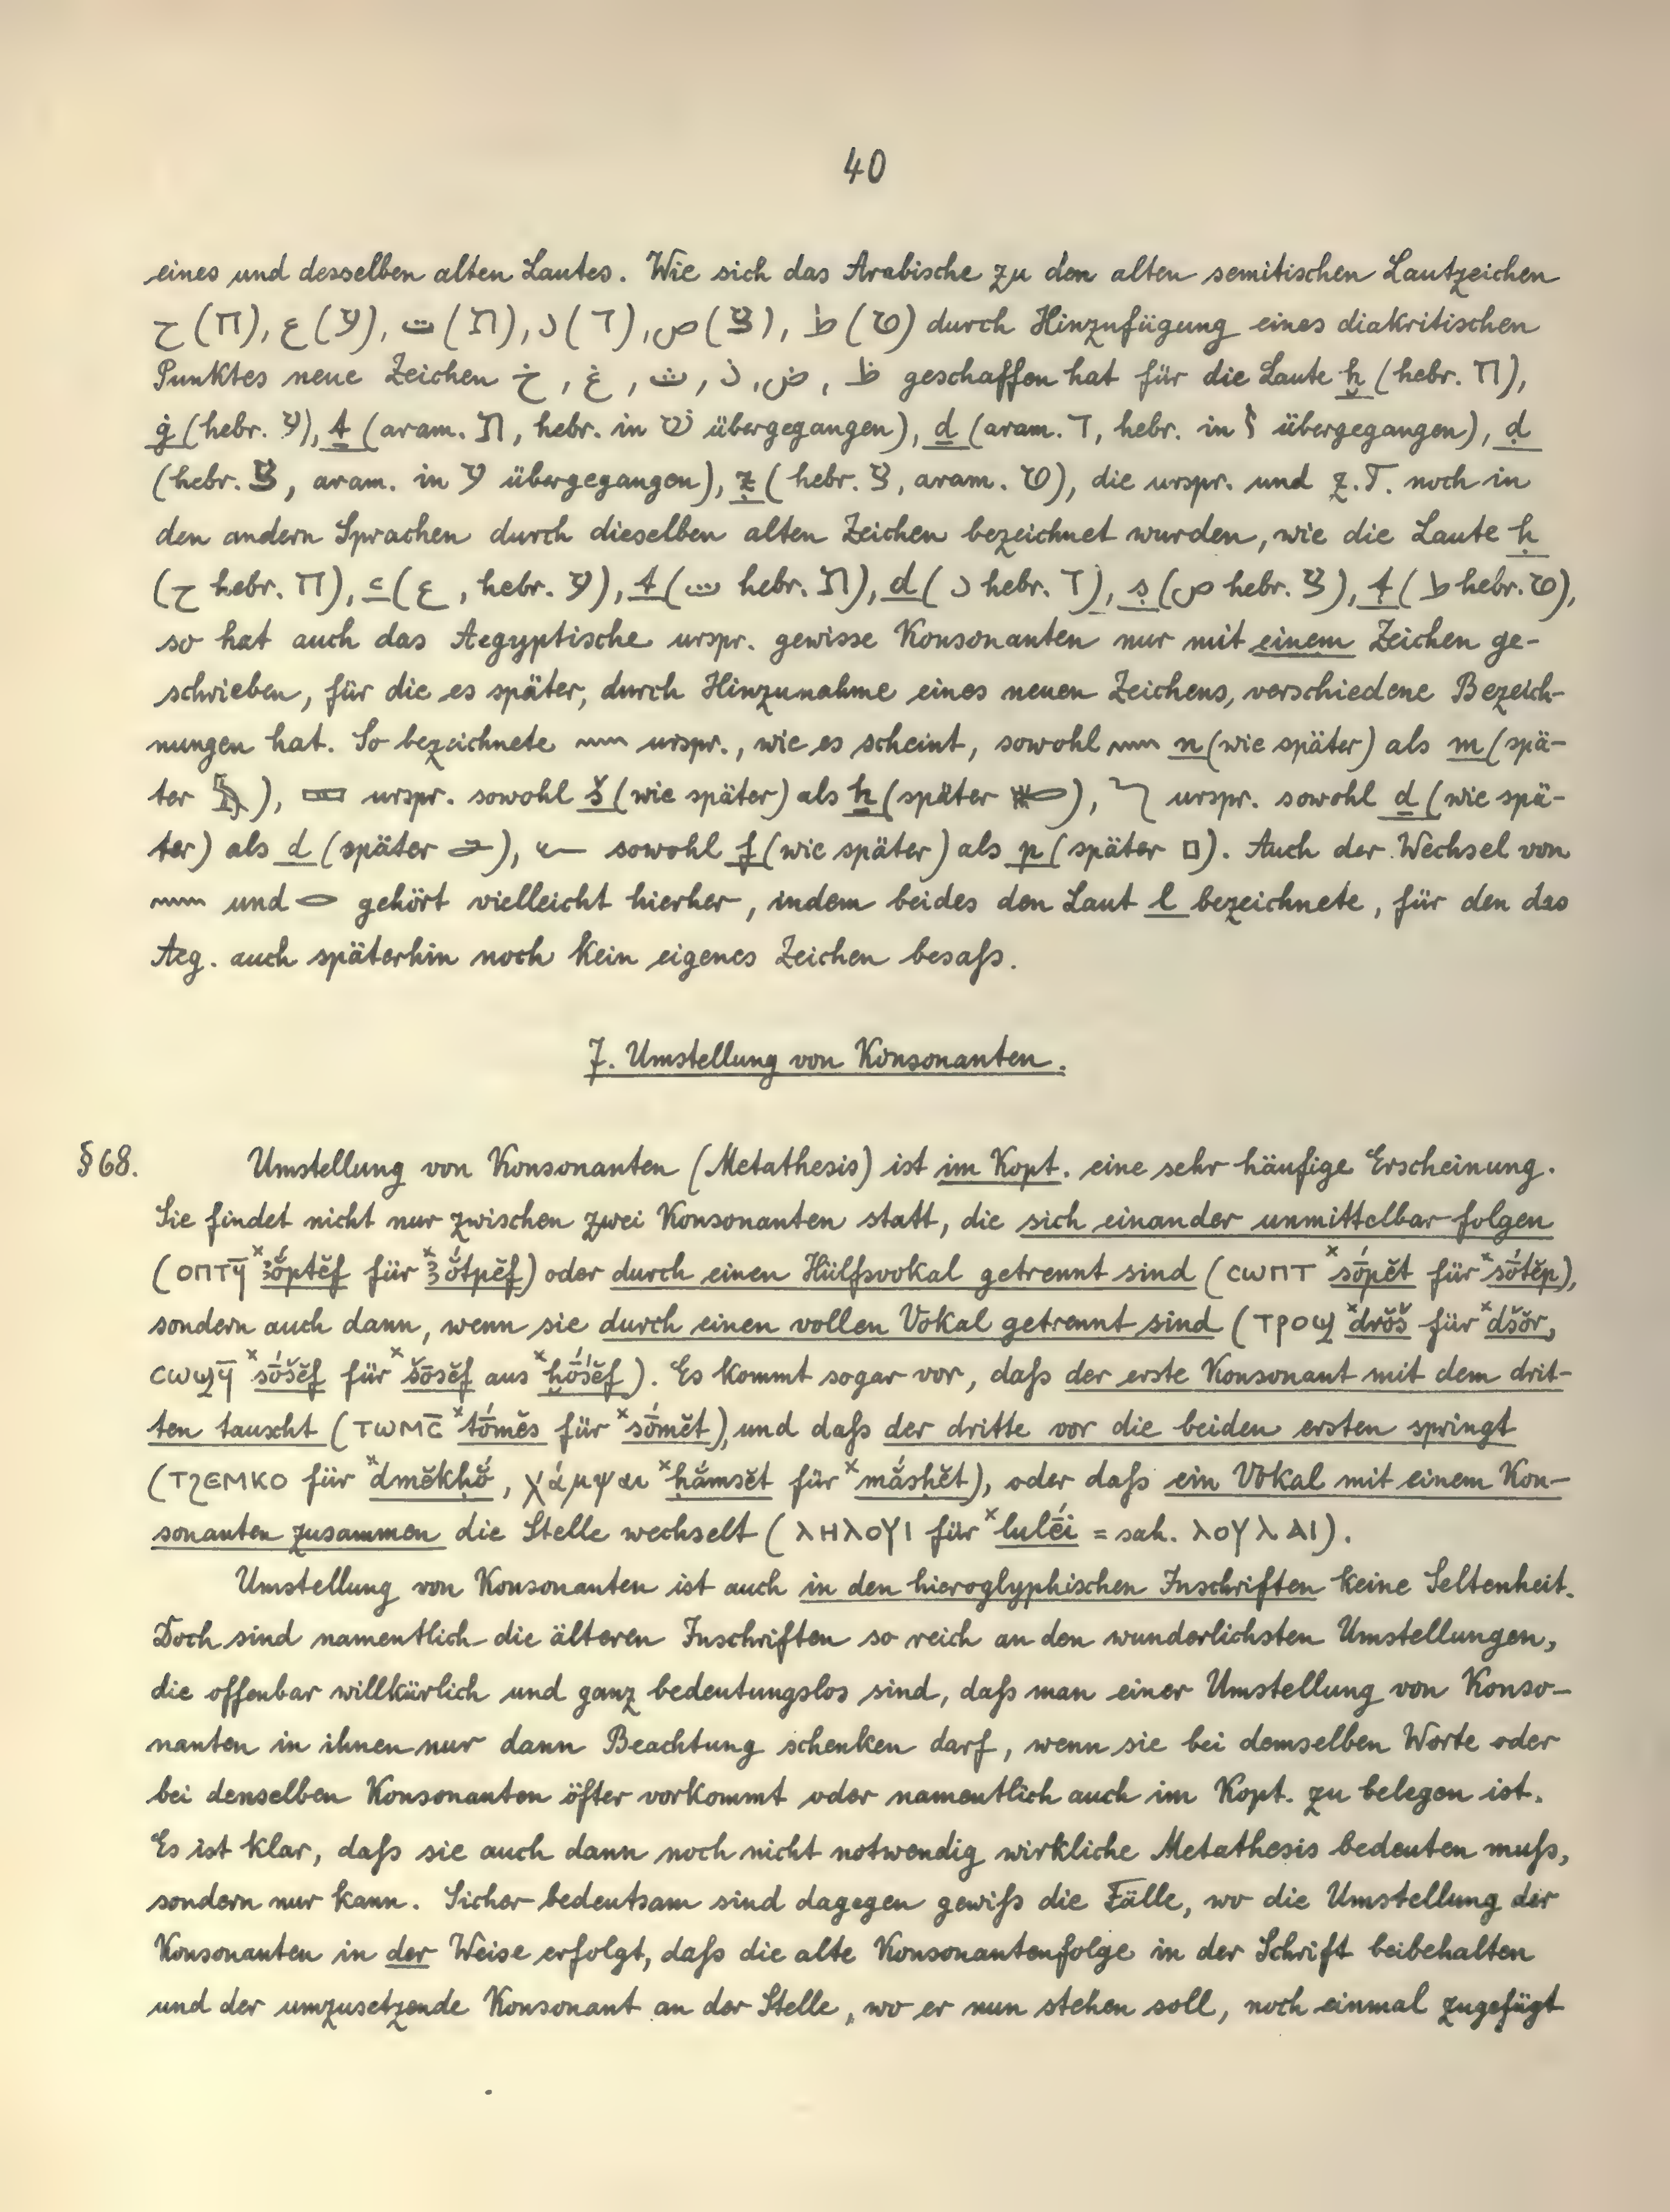 40
eines und desselben alten Lautes. Wie sich das Arabische zu den alten semitischen Lautzeichen
ح (ח), ع (ע), ت (ת), د (ד), ص (צ), ط (ט) durch Hinzufügung eines diakritischen
Punktes neue Zeichen خ, غ, ث, ذ, ض, ظ geschaffen hat für die Laute ḫ (hebr. ח),
ġ (hebr. ע), ṯ (aram. ת, hebr. in שׁ übergegangen), ḏ (aram. ד, hebr. in ז übergegangen), ḍ
(hebr. צ, aram. in ע übergegangen), ẓ (hebr. צ, aram. ט), die urspr. und z.T. noch in
den andern Sprachen durch dieselben alten Zeichen bezeichnet wurden, wie die Laute ḥ
(ح hebr. ח), ꜥ (ع, hebr. ע), t (ت hebr. ת), d (د hebr. ד), ṣ (ص hebr. צ), ṭ (ط hebr. ט),
so hat auch das Aegyptische urspr. gewisse Konsonanten nur mit einem Zeichen ge-
schrieben, für die es später, durch Hinzunahme eines neuen Zeichens, verschiedene Bezeich-
nungen hat. So bezeichnete 𓈖 urspr., wie es scheint, sowohl 𓈖 n (wie später) als m (spä-
ter 𓅓), 𓈙 urspr. sowohl š (wie später) als ẖ (später 𓄡), 𓆓 urspr. sowohl ḏ (wie spä-
ter) als d (später 𓂧), 𓆑 sowohl f (wie später) als p (später 𓊪). Auch der Wechsel von
𓈖 und 𓂋 gehört vielleicht hierher, indem beides den Laut l bezeichnete, für den das
Aeg. auch späterhin noch kein eigenes Zeichen besaſs.
7. Umstellung von Konsonanten.
§ 68. Umstellung von Konsonanten (Metathesis) ist im Kopt. eine sehr häufige Erscheinung.
Sie findet nicht nur zwischen zwei Konsonanten statt, die sich einander unmittelbar folgen
(ⲟⲡⲧϥ̄ ˣꜣŏ́ptĕf für ˣꜣŏ́tpĕf) oder durch einen Hülfsvokal getrennt sind (ⲥⲱⲡⲧ ˣsṓpĕt für ˣsṓtĕp),
sondern auch dann, wenn sie durch einen vollen Vokal getrennt sind (ⲧⲣⲟϣ ˣdrŏš für ˣdšŏr,
ⲥⲱϣϥ̄ ˣsṓšĕf für ˣšṓsĕf aus ˣḫṓsĕf). Es kommt sogar vor, daſs der erste Konsonant mit dem drit-
ten tauscht (ⲧⲱⲙⲥ̄ ˣtṓmĕs für ˣsṓmĕt), und daſs der dritte vor die beiden ersten springt
(ⲧϩⲉⲙⲕⲟ für ˣdmĕkḥŏ́, χάμψαι ˣḥắmsĕt für ˣmắsḥĕt), oder daſs ein Vokal mit einem Kon-
sonanten zusammen die Stelle wechselt (ⲗⲏⲗⲟⲩⲓ für ˣlulḗi = sah. ⲗⲟⲩⲗⲁⲓ).
Umstellung von Konsonanten ist auch in den hieroglyphischen Inschriften keine Seltenheit.
Doch sind namentlich die älteren Inschriften so reich an den wunderlichsten Umstellungen,
die offenbar willkürlich und ganz bedeutungslos sind, daſs man einer Umstellung von Konso-
nanten in ihnen nur dann Beachtung schenken darf, wenn sie bei demselben Worte oder
bei denselben Konsonanten öfter vorkommt oder namentlich auch im Kopt. zu belegen ist.
Es ist klar, daſs sie auch dann noch nicht notwendig wirkliche Metathesis bedeuten muſs,
sondern nur kann. Sicher bedeutsam sind dagegen gewiſs die Fälle, wo die Umstellung der
Konsonanten in der Weise erfolgt, daſs die alte Konsonantenfolge in der Schrift beibehalten
und der umzusetzende Konsonant an der Stelle, wo er nun stehen soll, noch einmal zugefügt